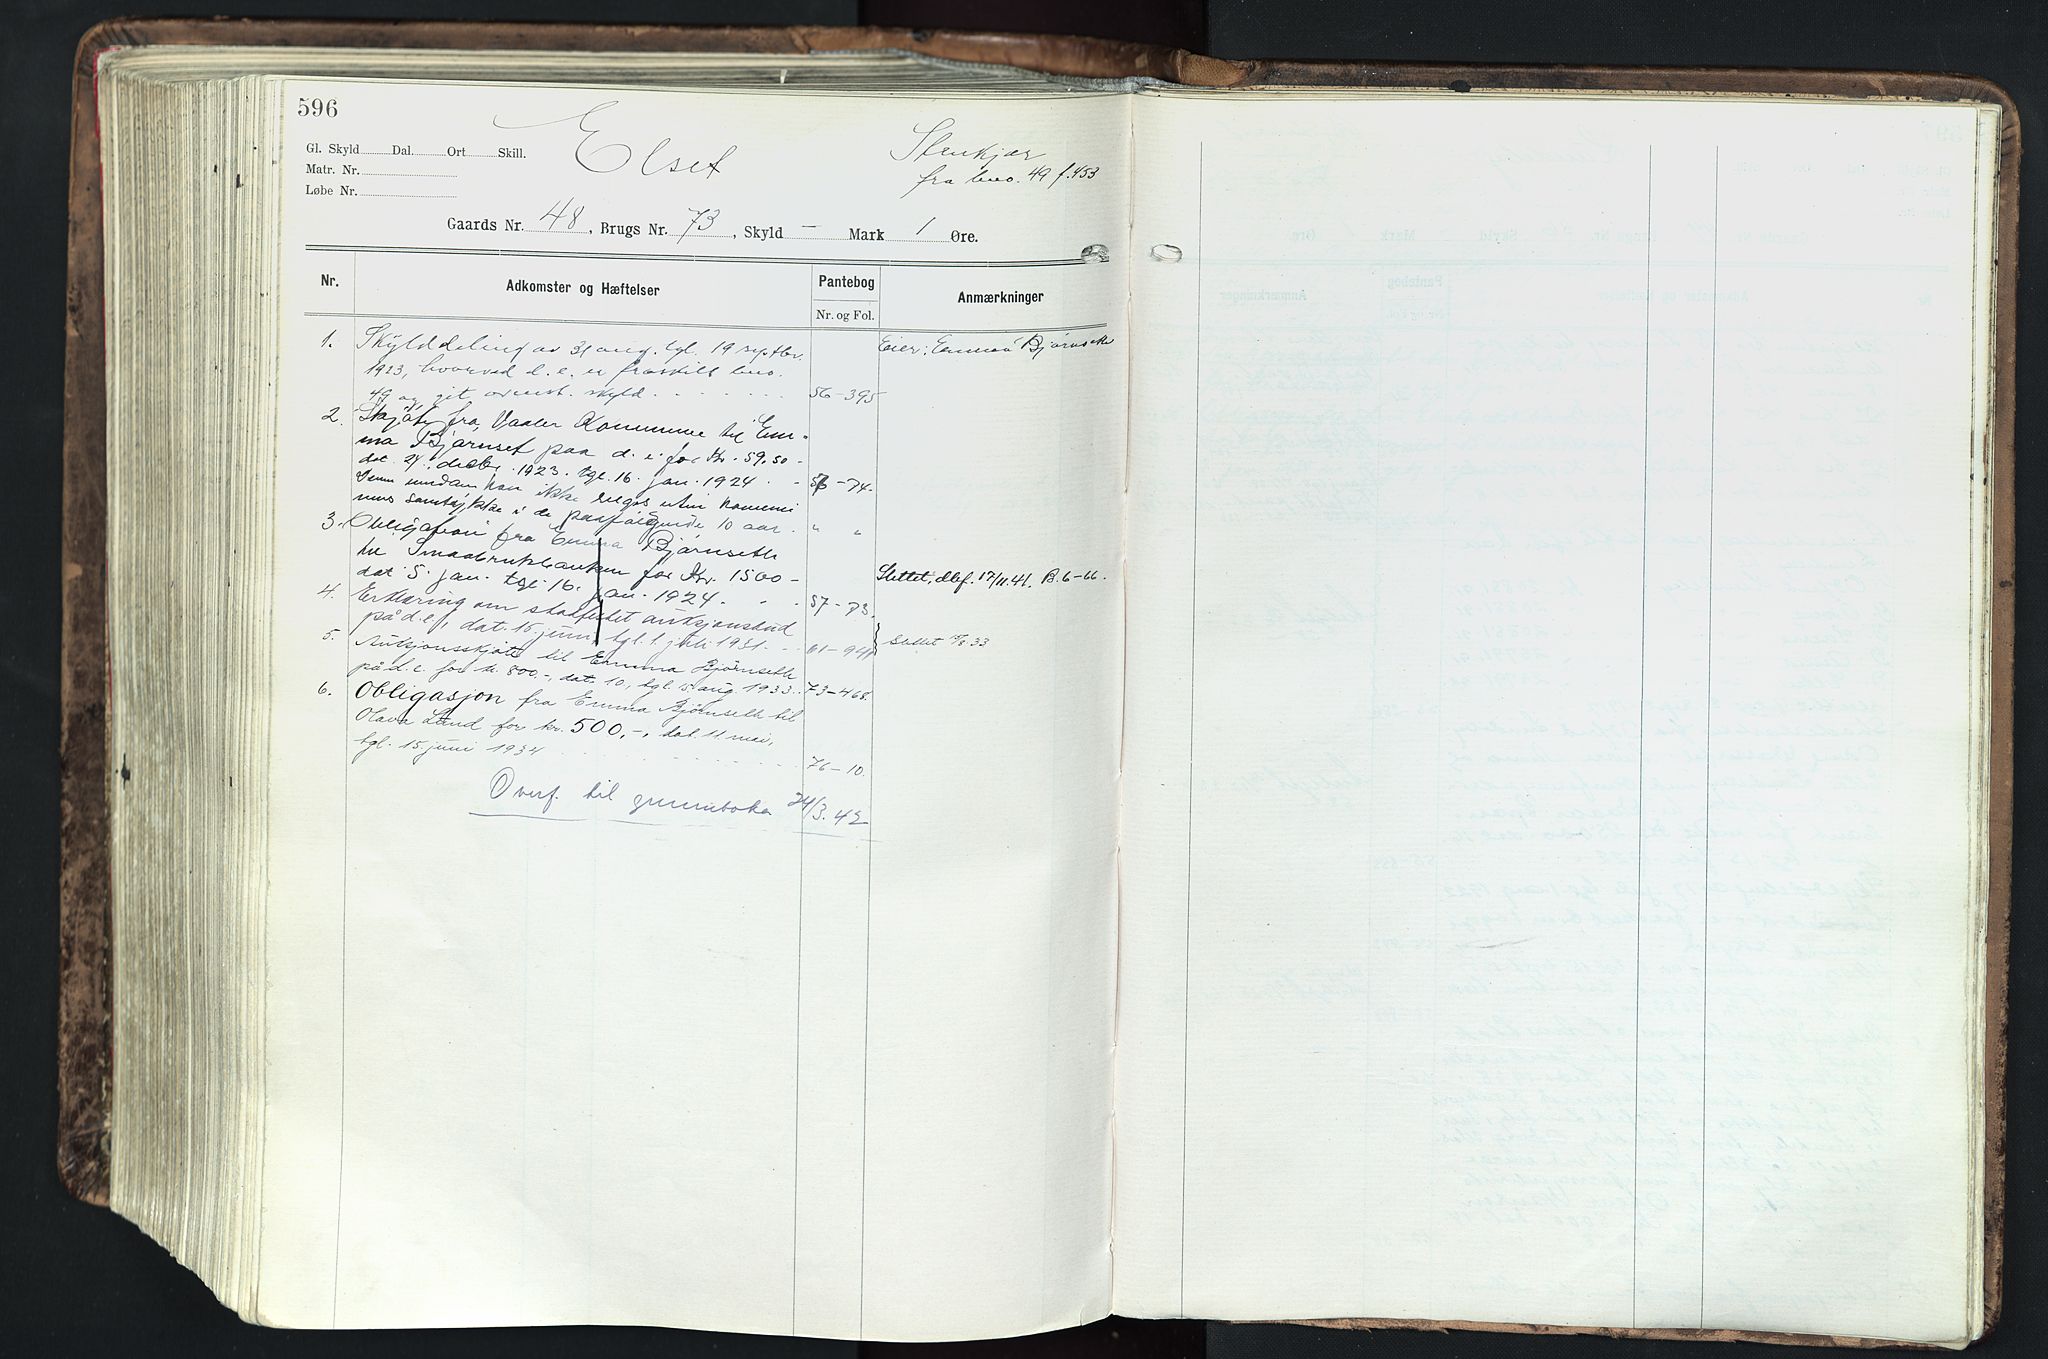 596
Elset
Stenkjær
fra bno. 49 f. 453
Gl. Skyld Dal. Ort Skill.
Matr. Nr.
Løbe Nr.
Gaards Nr. 48, Brugs Nr. 73, Skyld – Mark 1 Øre.
Nr. Adkomster og Hæftelser Pantebog Anmærkninger
Nr. og Fol.
1. Skylddeling av 31 aug. tgl. 19 septbr. Eier: Emma Bjørnseth
1923, hvorved d. e. er fraskilt bno.
49 og git ovenst. skyld 56–395
2. Skjöte fra Vaaler Kommune til Em-
ma Bjørnset paa d. e. for Kr. 59.50 –
dat. 24. desbr. 1923. tgl. 16. jan. 1924 56–74.
Denne eiendom kan ikke selges uten kommu
nens samtykke i de paafølgende 10 aar. " "
3. Obligation fra Emma Bjørnseth
til Smaabrukbanken for Kr. 1500 –
dat 5. jan. tgl. 16. jan. 1924. 57–73. Slettet, dbf. 17/11.41. B. 6–66.
4. Erklæring om stadfestet auksjonsbud
på d. e., dat. 15. juni, tgl. 1. juli 1931. 61–941 Slettet 33
5. Auksjonsskjøte til Emma Bjørnseth
på d. e. for kr. 800.–, dat. 10., tgl. 5. aug. 1933. 73–468.
6. Obligasjon fra Emma Bjørnseth til
Olava Lund for kr. 500,–, dat. 11 mai,
tgl. 15. juni 1934 76–10.
Overf. til grunnboka 24/3.42